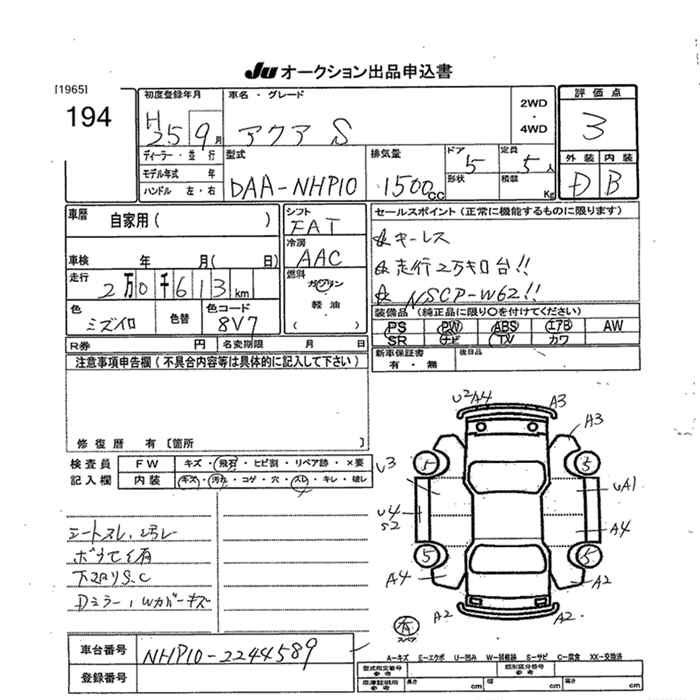 JU オークション出品申込書
[1965]
194
初度登録年月
H 25 9月
車名・グレード
アクア S
2WD
・
4WD
評価点
3
外装 内装
D B
ディーラー・並行
モデル年式 年
ハンドル 左・右
型式
DAA-NHP10
排気量
1500cc
ドア
5
形状
定員
5人
積載
Kg
車歴
自家用( )
車検 年 月( 日)
走行
2万0千613km
色
ミズイロ
色替
色コード
8V7
シフト
FAT
冷房
AAC
燃料
ガソリン
軽油
( )
セールスポイント(正常に機能するものに限ります)
☆キーレス
☆走行2万キロ台!!
☆NSCP-W62!!
装備品(純正品に限り○を付けてください)
PS PW ABS エアB AW
SR ナビ TV カワ
R券 円 名変期限 月 日
新車保証書
有・無
後日品
注意事項申告欄(不具合内容等は具体的に記入して下さい)
修復歴 有[箇所 ]
検査員
記入欄
FW キズ・飛石・ヒビ割・リペア跡・×要
内装 キズ・汚れ・コゲ・穴・スレ・キレ・破レ
シートスレ、汚レ
下回りS.C
Dミラー、Wカバーキズ
U2A4 A3
A3
U3
5 5
UA1
U4
S2
A4
5 5
A4 A2
A2 A2
スペア
A―キズ E―エクボ U―凹み W―補修跡 S―サビ C―腐食 XX―交換済
車台番号
NHP10-2244589
登録番号
型式指定番号
参考
類別区分番号
参考
車庫証明用
参考
長さ cm 幅 cm 高さ cm